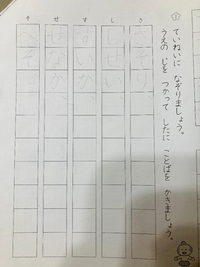 ①
ていねいに なぞりましょう。
うえの じを つかって したに ことばを かきましょう。
さ
し
しせい
す
すいか
せ
せなか
そ